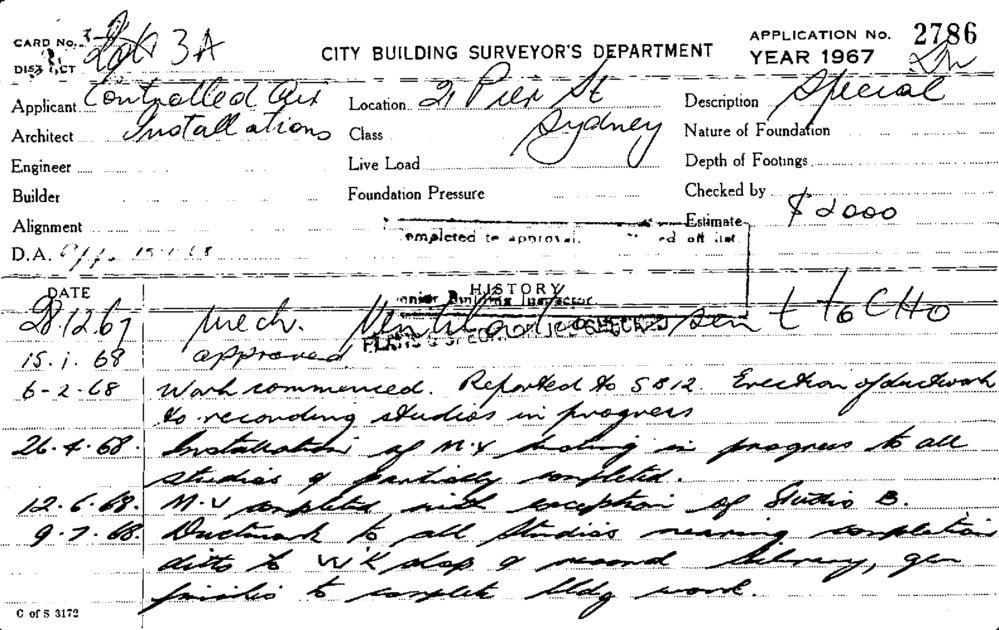 CARD No. 3A
DISTRICT
CITY BUILDING SURVEYOR'S DEPARTMENT
APPLICATION No. 2786
YEAR 1967
Applicant Controlled Air
Location 21 Pier St
Description Special
Architect Installations
Class Sydney
Nature of Foundation
Engineer
Live Load
Depth of Footings
Builder
Foundation Pressure
Checked by
Alignment
Estimate $2000
completed to approval. off list.
D.A. App. 15.1.68
DATE
HISTORY
Senior Building Inspector
PLANS & SPECIFICATIONS CHECKED
28.12.67 Mech. Ventilation sent to CHO
15.1.68 approved
6-2-68 Work commenced. Reported to SB12. Erection of ductwork
to recording studios in progress
26.4.68. Installation of M.V ducting in progress to all
studios & partially completed.
12.6.68. M.V completed, with exception of Studio B.
9.7.68. Ductwork to all Studios nearing completion
ditto to W'K shop & record library, gen
finishes to complete bldg work.
C of S 3172